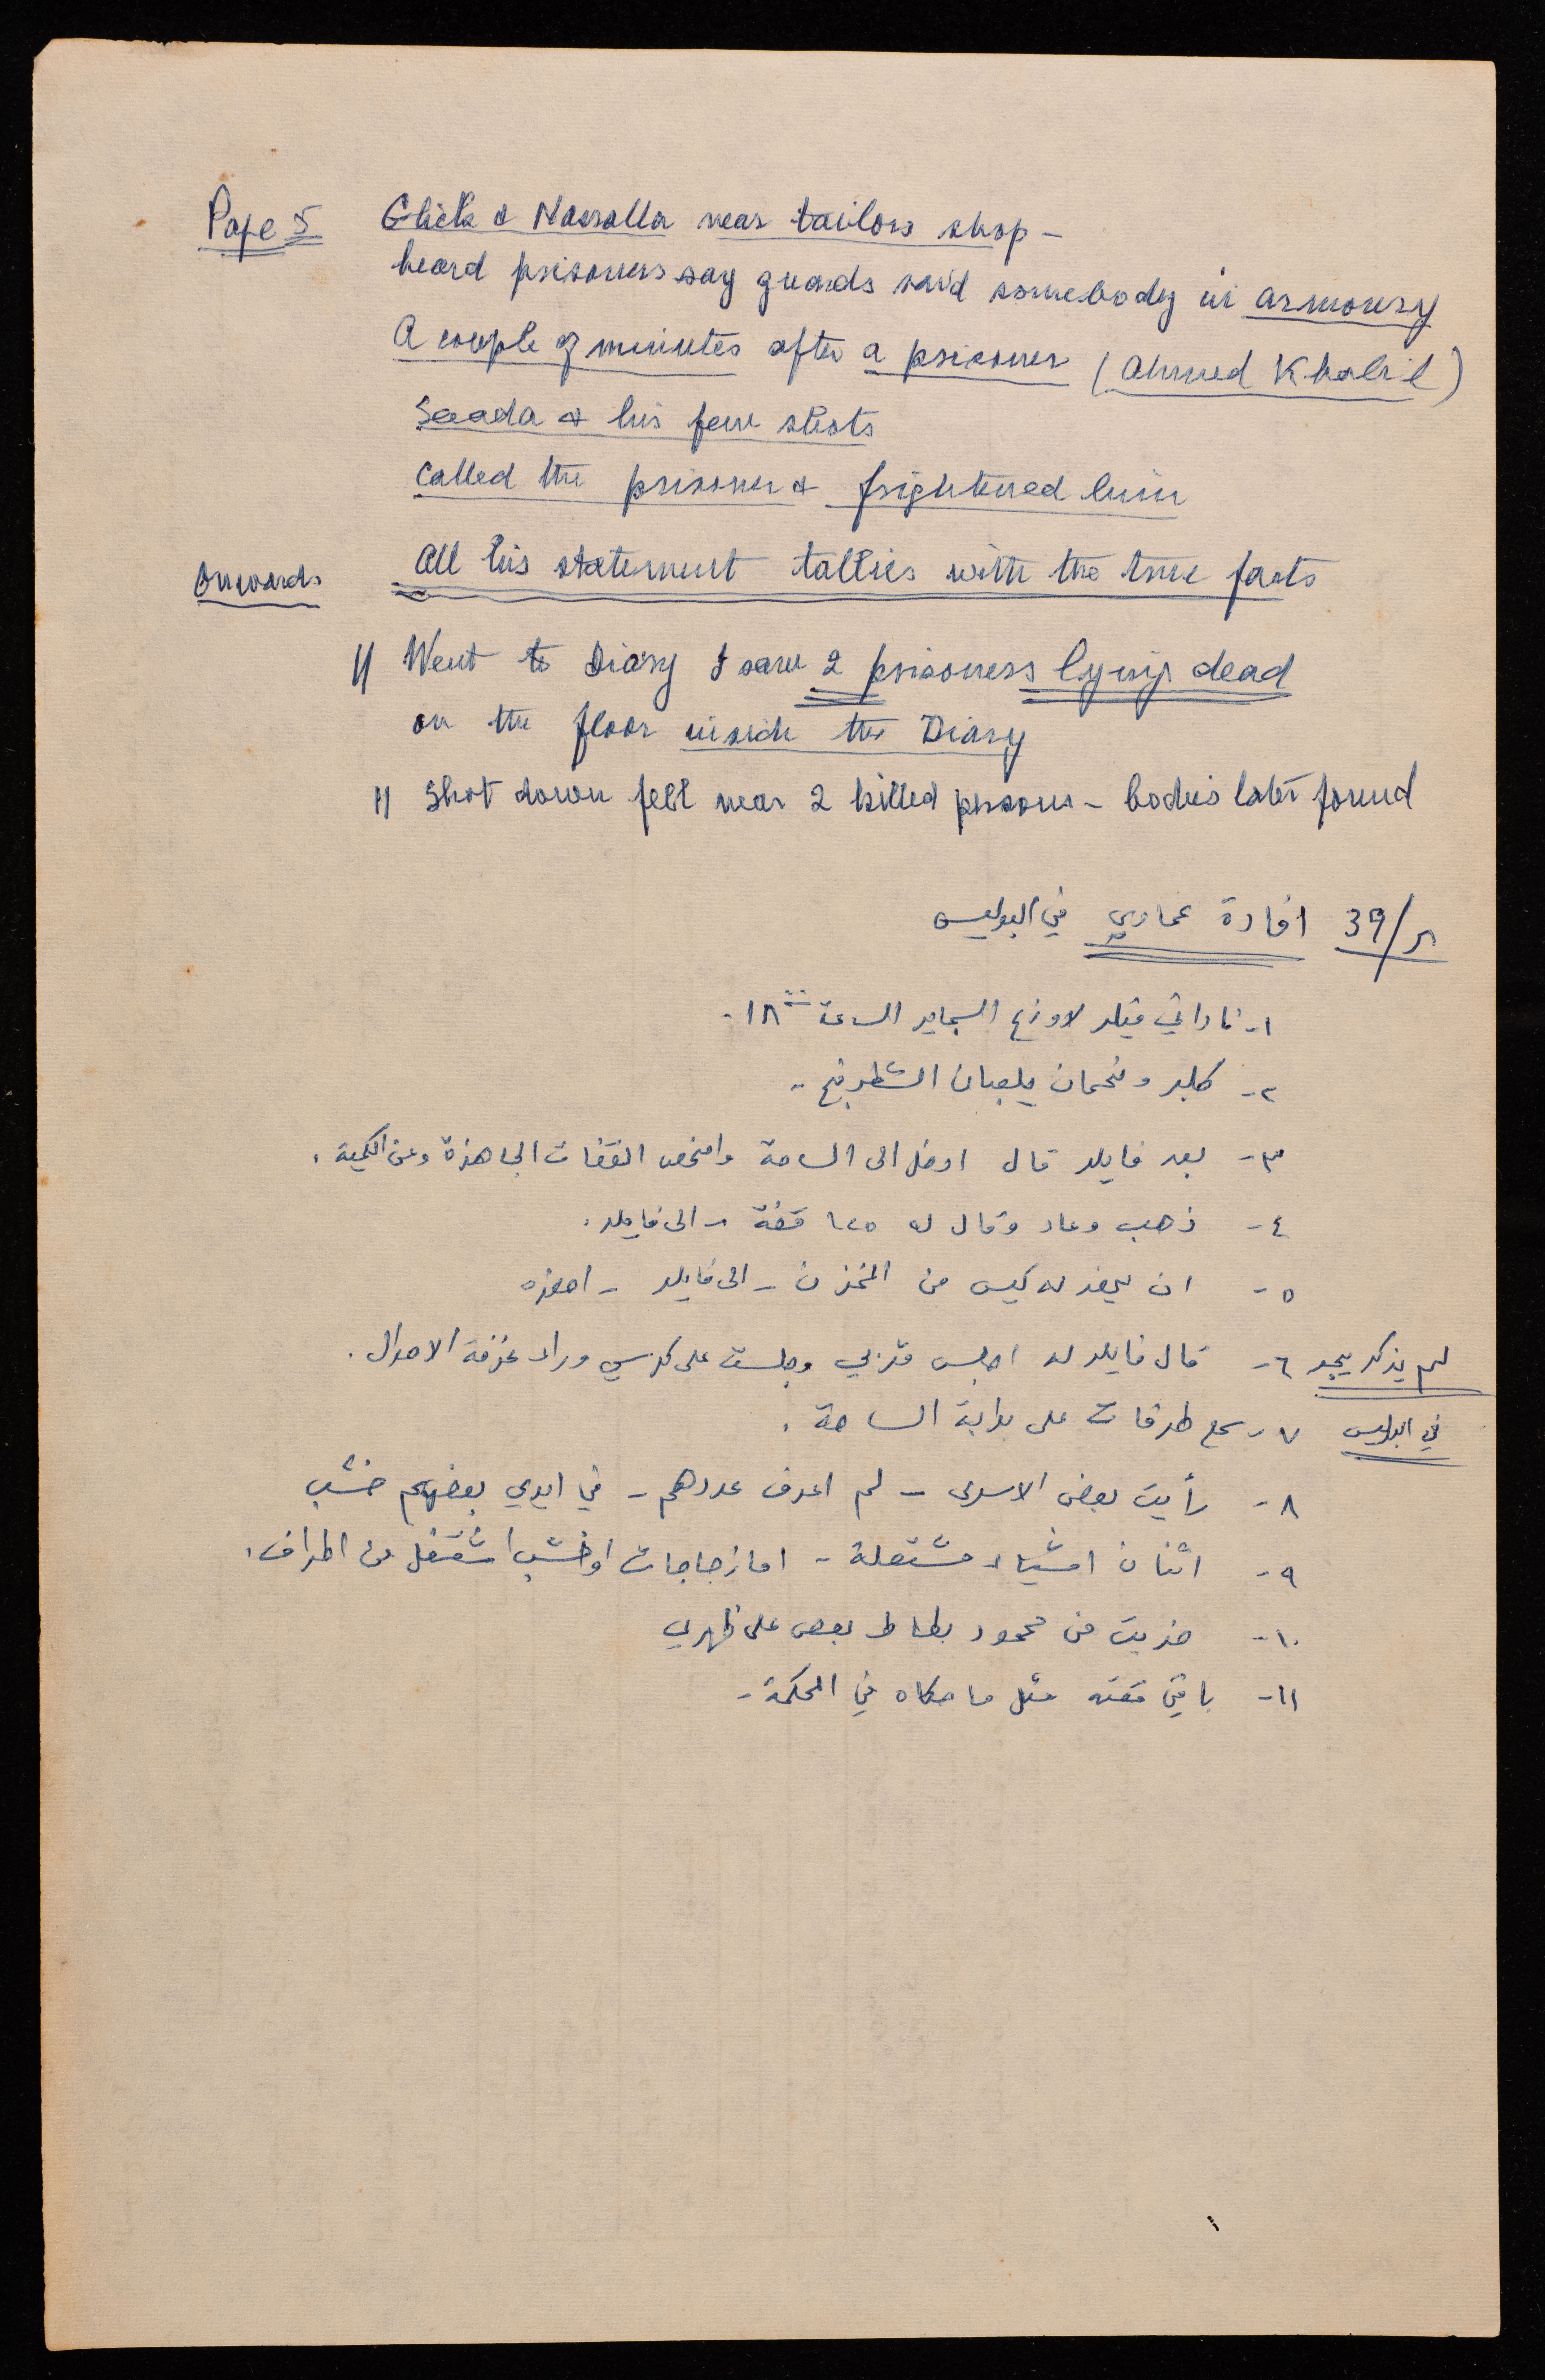 Page 5 Glick & Nasralla near tailors shop -
heard prisoners say guards said somebody in armoury
A couple of minutes after a prisoner (Ahmed Khalil)
Saada & his few shots
Called the prisoner & frightened him
Onwards All his statement tallies with the true facts
// Went to Diary & saw 2 prisoners lying dead
on the floor inside the Diary
// Shot down fell near 2 killed prisons - bodies later found
39/ افادة عماري في البوليس
١- ناداني فيلد لاوزع السجاير الساعة ١٨٠٠.
٢- كلبر ونحمان يلعبان الشطرنج -
٣- بعد فايلد قال ادخل الى الساحة وافحص القفات الجاهزة وعن الكمية.
٤- ذهب وعاد وقال له ١٢٥ قفة - الى فايلد.
٥- ان يحضر له كيس من المخزن - الى فايلد - احضره
لم يذكر يجر ٦- قال فايلد له اجلس قربي وجلست على كرسي وراء غرفة الاحوال.
في البوليس ٧- سمع طرقات على بوابة الساحة.
٨- رأيت بعض الاسرى - لم اعرف عددهم - في ايدي بعضهم خشب
٩- اثنان اشياء مشتعلة - اما زجاجات او خشب اشتعل من اطراف.
١٠- ضربت من محمود بطاط بعصى على ظهري
١١- باقي قصته مثل ما حكاه في المحكمة -